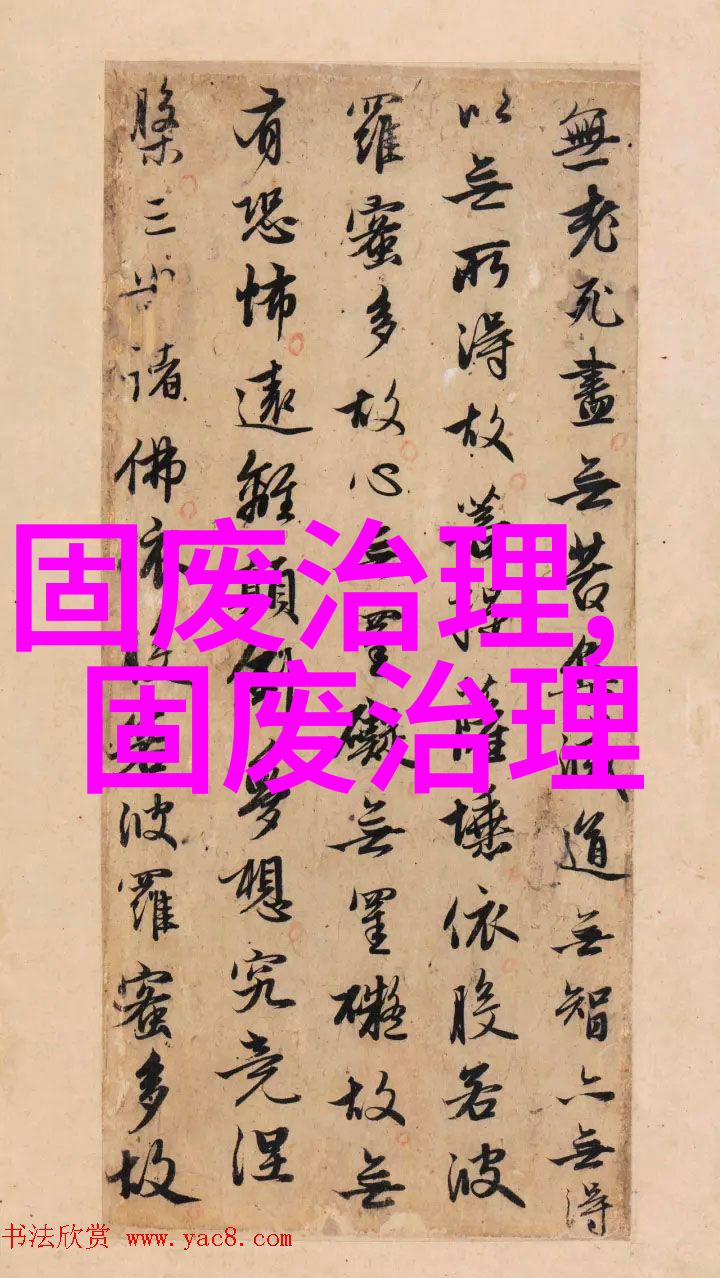 無老死盡無苦集滅道無智亦無得
以無所得故菩提薩埵依般若波
羅蜜多故心無罣礙無罣礙故無
有恐怖遠離顛倒夢想究竟涅
槃三世諸佛依般若波羅蜜多故
固废治理,
固废治理
书法欣赏 www.yac8.com